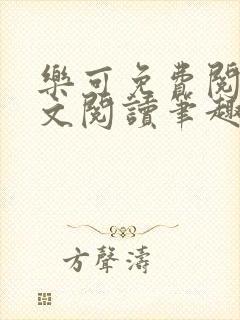 樂可免費閱
文閱讀筆趣
方聲濤